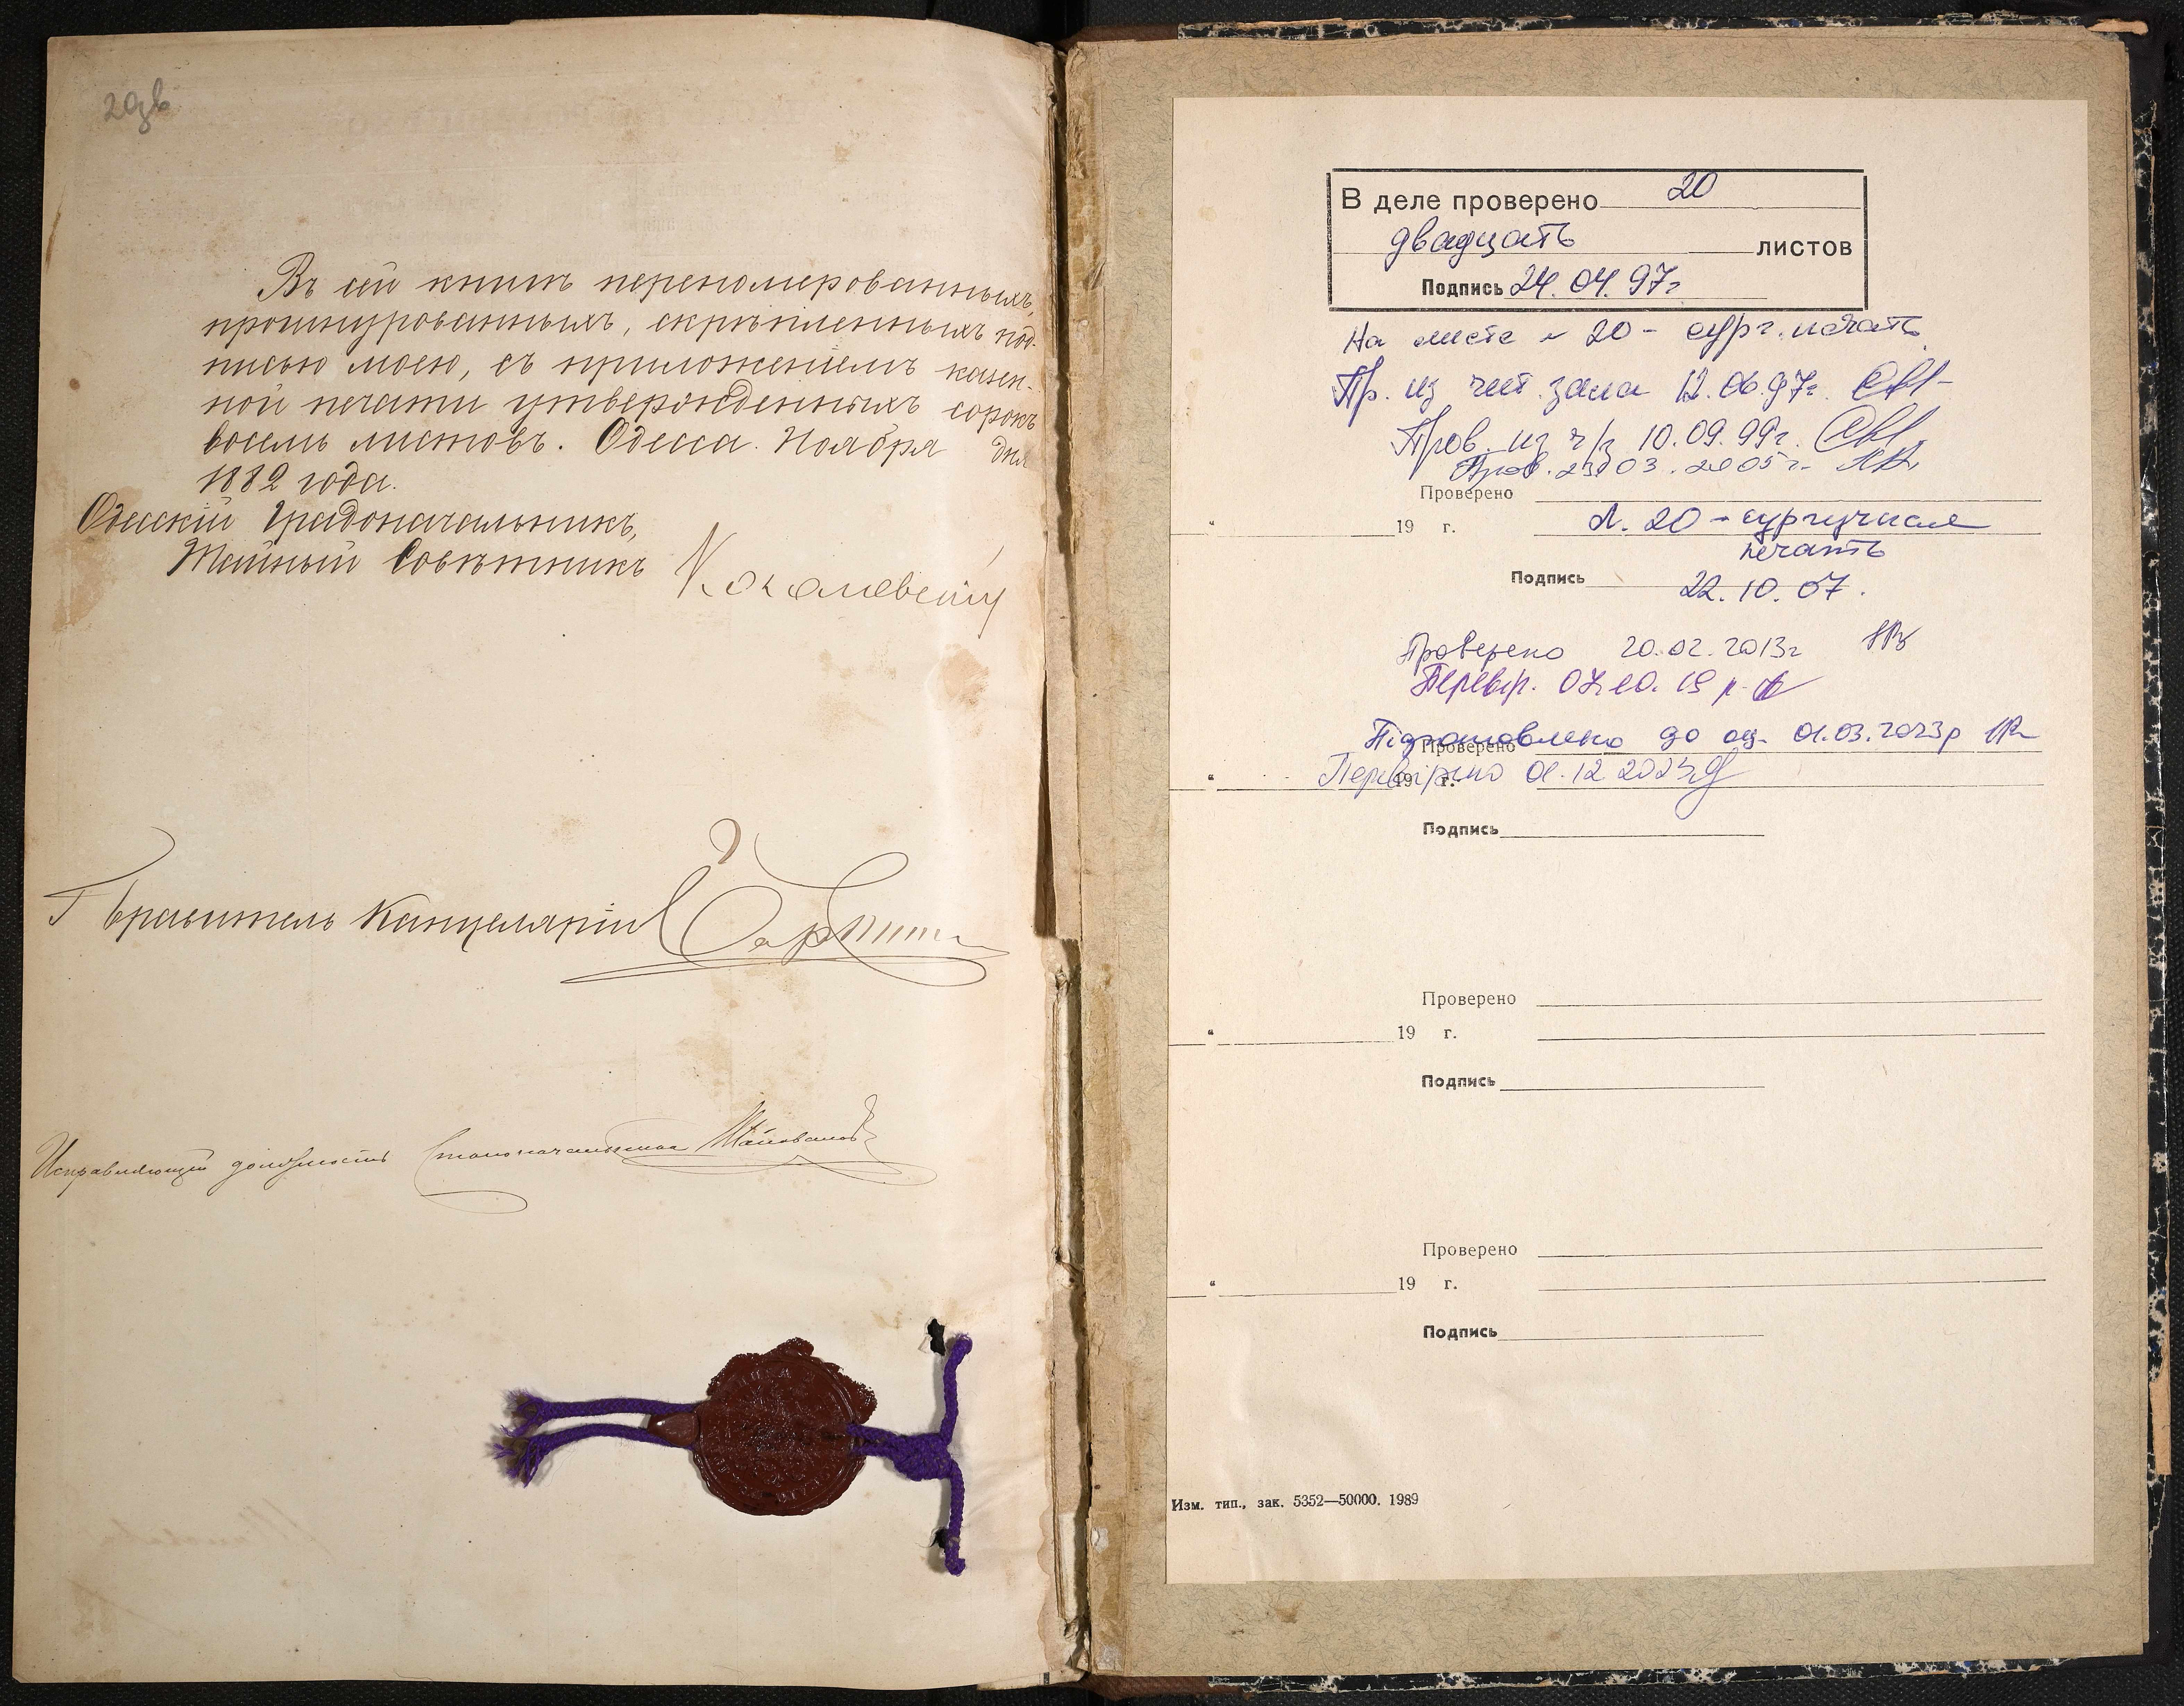 20дв
Въ сей книгѣ переномерованныхъ,
прошнурованныхъ, скрѣпленныхъ под-
писью моею, съ приложеніемъ казен-
ной печати утвержденныхъ сорокъ
восемь листовъ. Одесса. Ноября дня
1882 года.
Одесскій Градоначальникъ,
Тайный Совѣтникъ
Правитель Канцеляріи
Исправляющій должность Столоначальника
В деле проверено 20
двадцать листов
Подпись 24.04.97г
На листе № 20 - сург. печать
Пр. из чит. зала 12.06.97г.
Пров. из ч/з 10.09.99г.
Пров. 23.03.2005г.
Проверено
" 19 г. Л. 20 - сургучная
печать
Подпись 22.10.07.
Проверено 20.02.2013г
Перевір. 07.10.19 р.
Підготовлено до оц. 01.03.2023р
Проверено
Перевірено 01.12.2023
" 19 г.
Подпись
Проверено
" 19 г.
Подпись
Проверено
" 19 г.
Подпись
Изм. тип., зак. 5352—50000. 1989